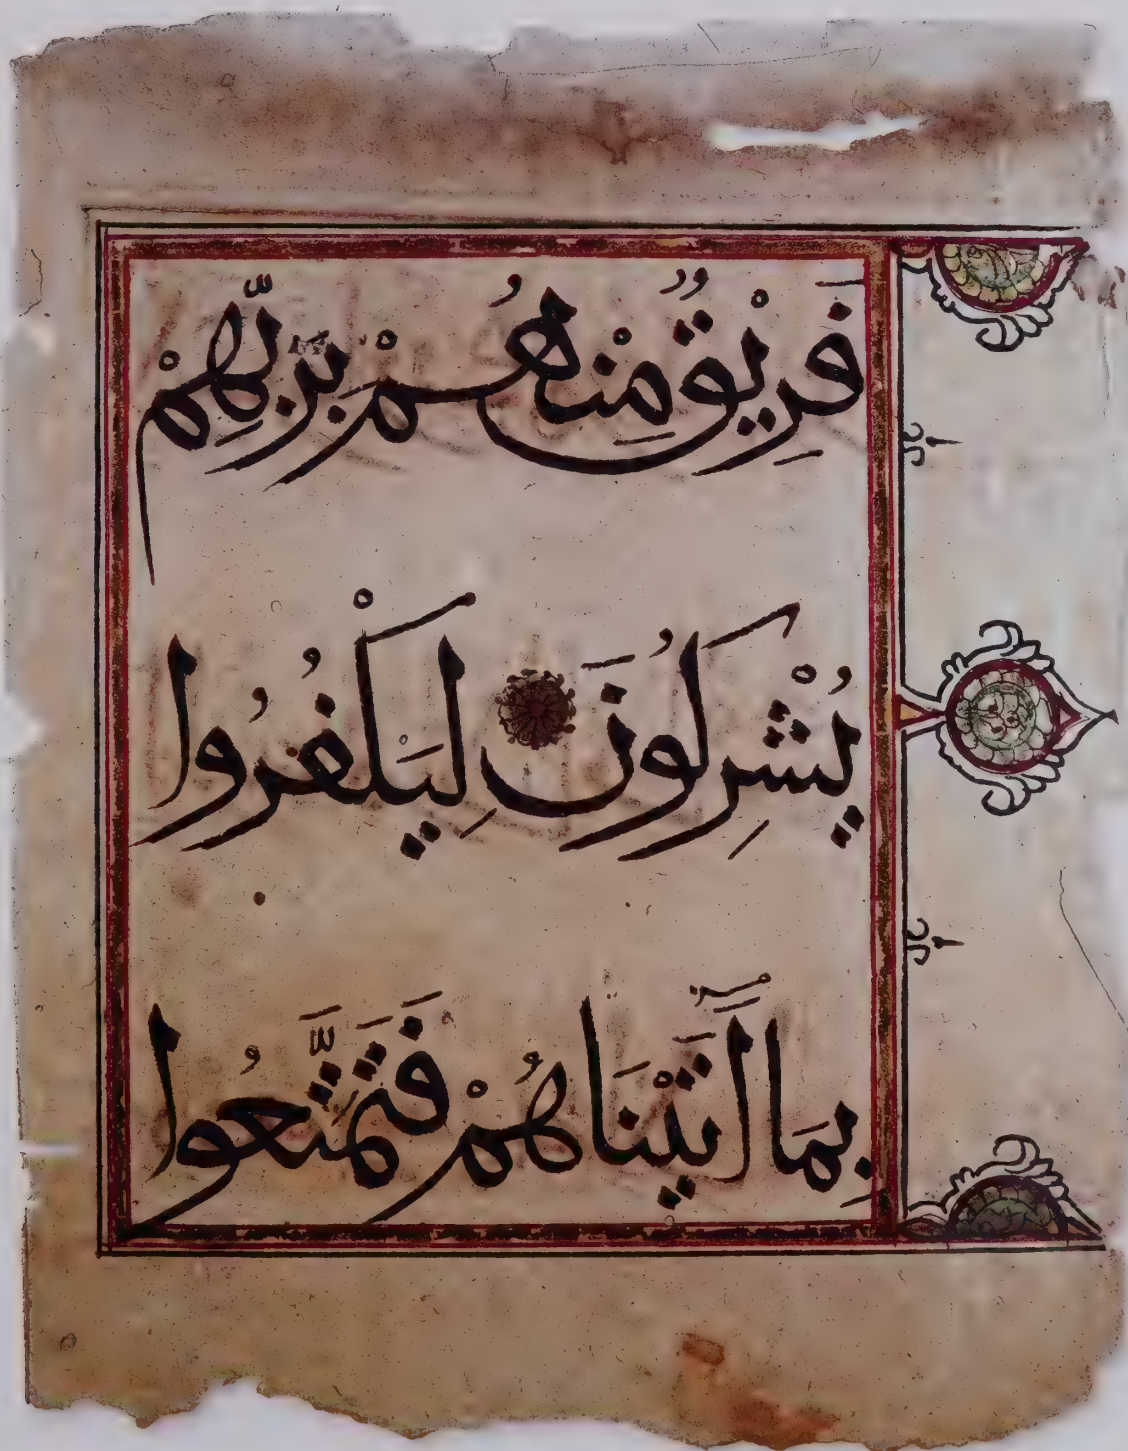 فَرِيْقٌ مِنْهُمْ بِرَبِّهِمْ
يُشْرِكُونَ لِيَكْفُرُوا
بِمَا اٰتَيْنَاهُمْ فَتَمَتَّعُوا